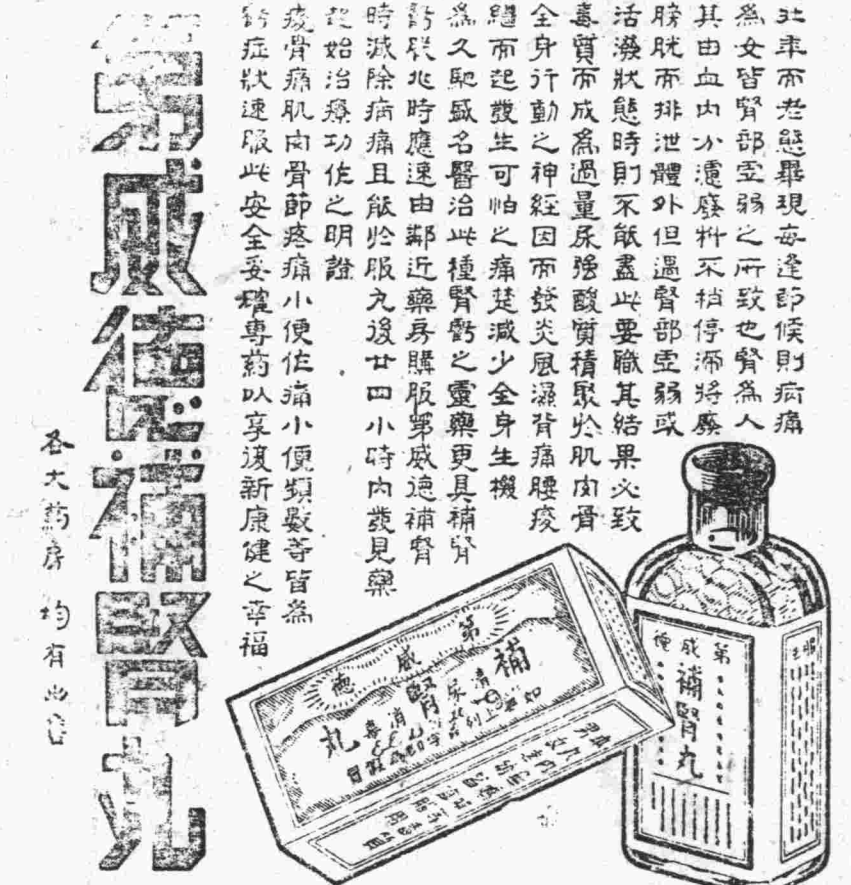 壯年而老態畢現每逢節候則病痛
為女皆腎部虛弱之所致也腎為人
其由血內分濾廢料不稍停滯將廢
膀胱而排泄體外但遇腎部虛弱或
活潑狀態時則不能盡此要職其結果必致
毒質而成為過量尿強酸質積聚於肌肉骨
全身行動之神經因而發炎風濕背痛腰痠
繼而起發生可怕之痛楚減少全身生機
為久馳盛名醫治此種腎虧之靈藥更具補腎
虧朕兆時應速由鄰近藥房購服第威德補腎
時減除病痛且能於服丸後廿四小時內發見藥
起始治療功作之明證
痠骨痛肌肉骨節疼痛小便作痛小便頻數等皆為
虧症狀速服此安全妥確專药以享復新康健之幸福
第威德補腎丸
各大药房均有出售
第威德
補腎丸
清尿
消毒
第威德
補腎丸